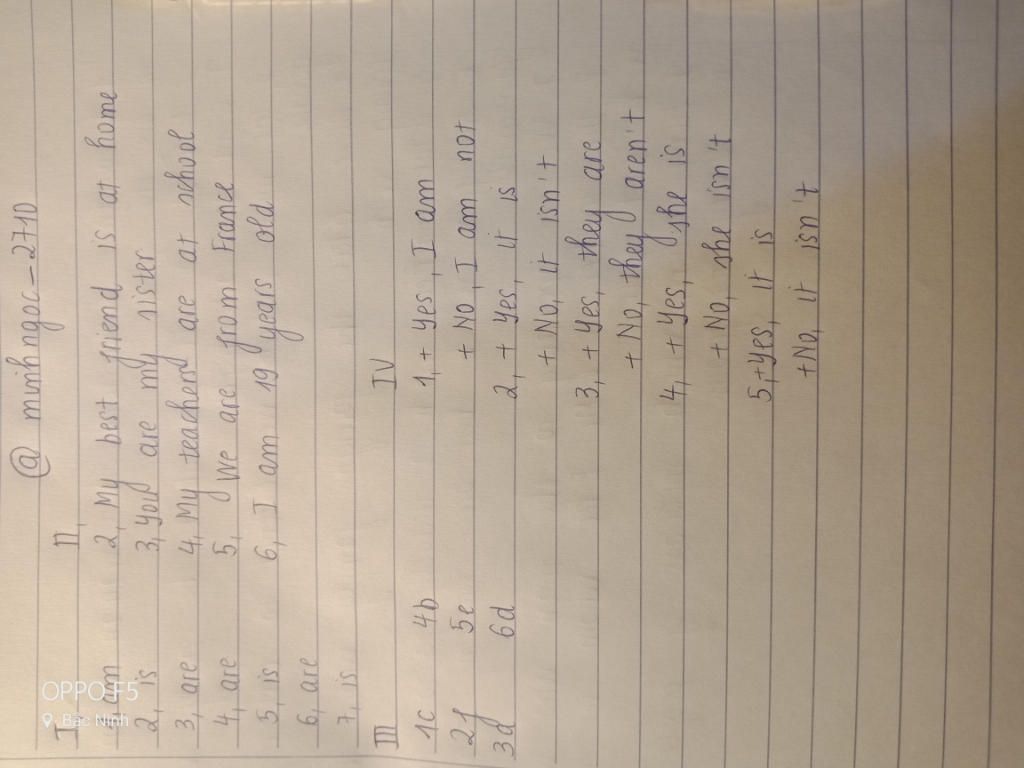 @ minhngoc_2710
I,
1, am
2, is
3, are
4, are
5, is
6, are
7, is
II,
2, My best friend is at home
3, you are my sister
4, My teachers are at school
5, We are from France
6, I am 19 years old
III
1c 4b
2f 5e
3d 6d
IV
1, + Yes, I am
+ No, I am not
2, + Yes, it is
+ No, it isn't
3, + Yes, they are
+ No, they aren't
4, + Yes, she is
+ No, she isn't
5, + Yes, it is
+ No, it isn't
OPPO F5
Bac Ninh